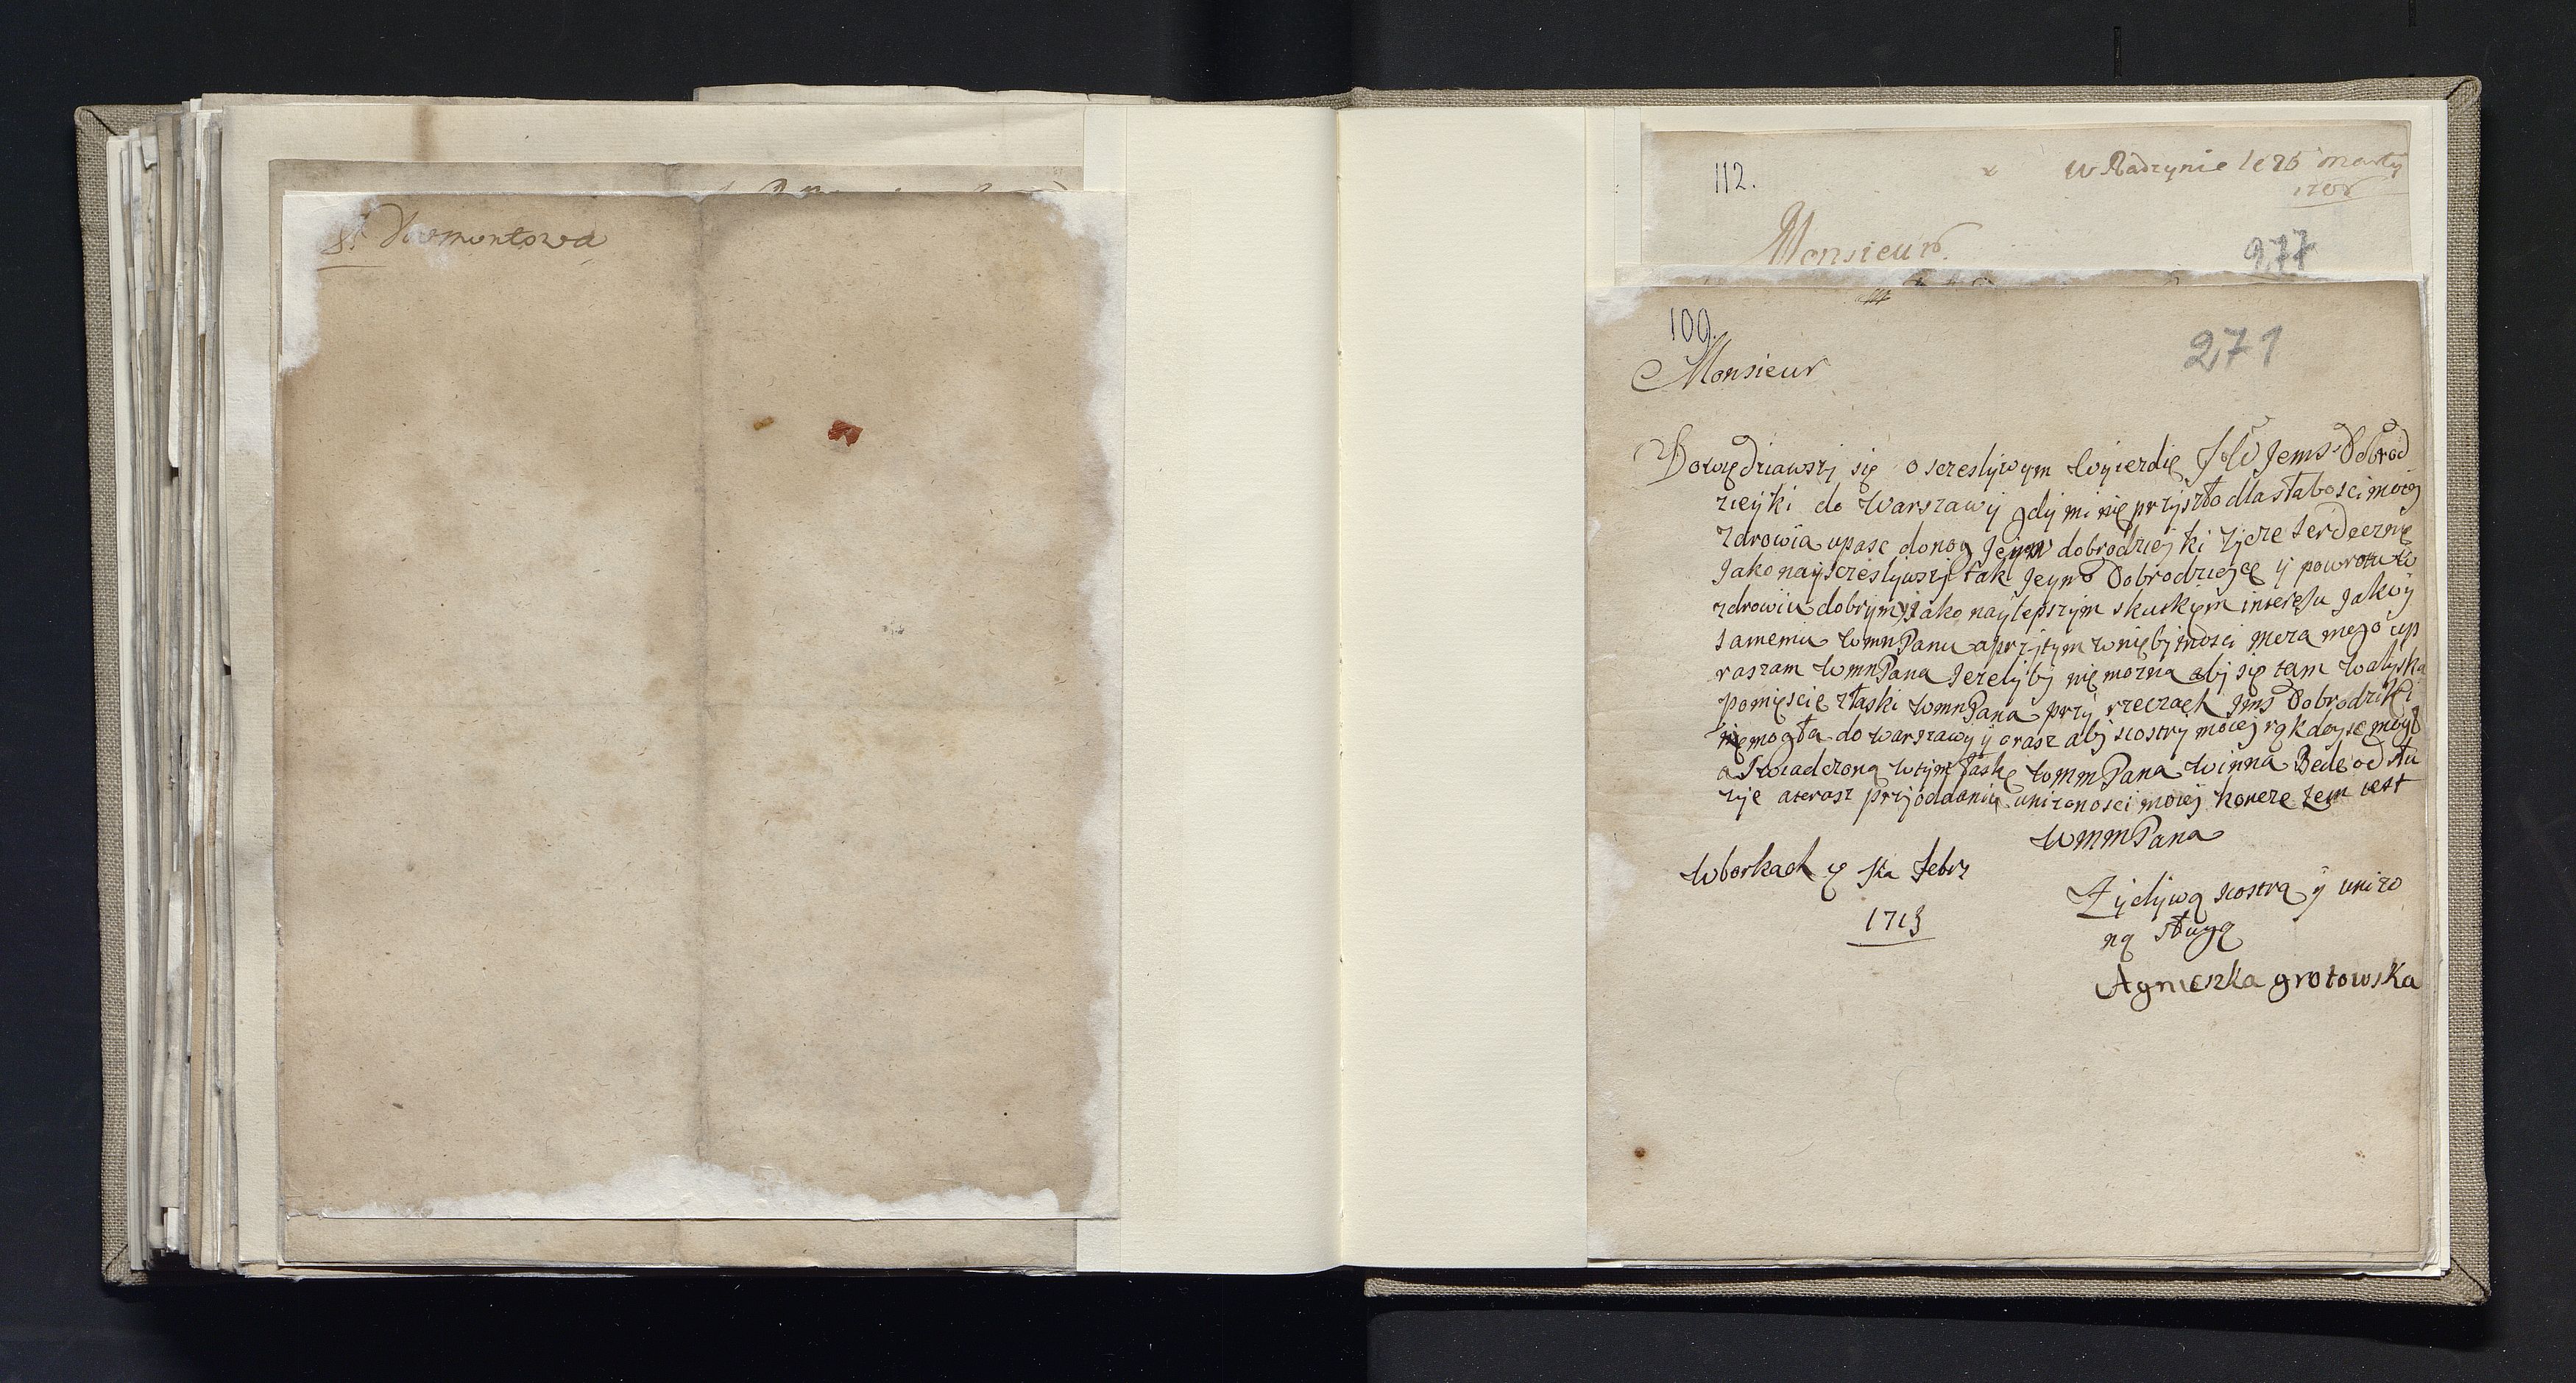 112.
w Radzynie le 26 marty
Monsieur.
277
109.
271
Monsieur
Dowiedziawszy się o szczeslywym wyiezdie JW Jems Dobrod
zieyki do Warszawy gdy mi nię przyszło dla słabosci moiey
zdrowia upasc do nog Jeymo dobrodziejki zycze serdecznię
Jako nayszczeslywszy tak Jeymo Dobrodziejcę y powrotu w
zdrowiu dobrym y Jako naylepszym skutkiem interęsu Jako y
samemu WmnPanu a przytym w nię bytnosci męza mego up
raszam WmnPana Jezelyby nię mozna aby się tam walyska
pomięscic z łaski WmnPana przy rzeczach Jms Dobrodziki
nię mogła do warszawy y oraz aby siostry moiej
a swiadczoną w tym łaskę WmmPana winna Bede od słu
zyc a teraz przy oddaniu unizonosci moiej koncze zem iest
WmmPana
W borkach Febr
1713
Zyczlywą siostrą y unizo
ną sługą
Agnieszka grotowska